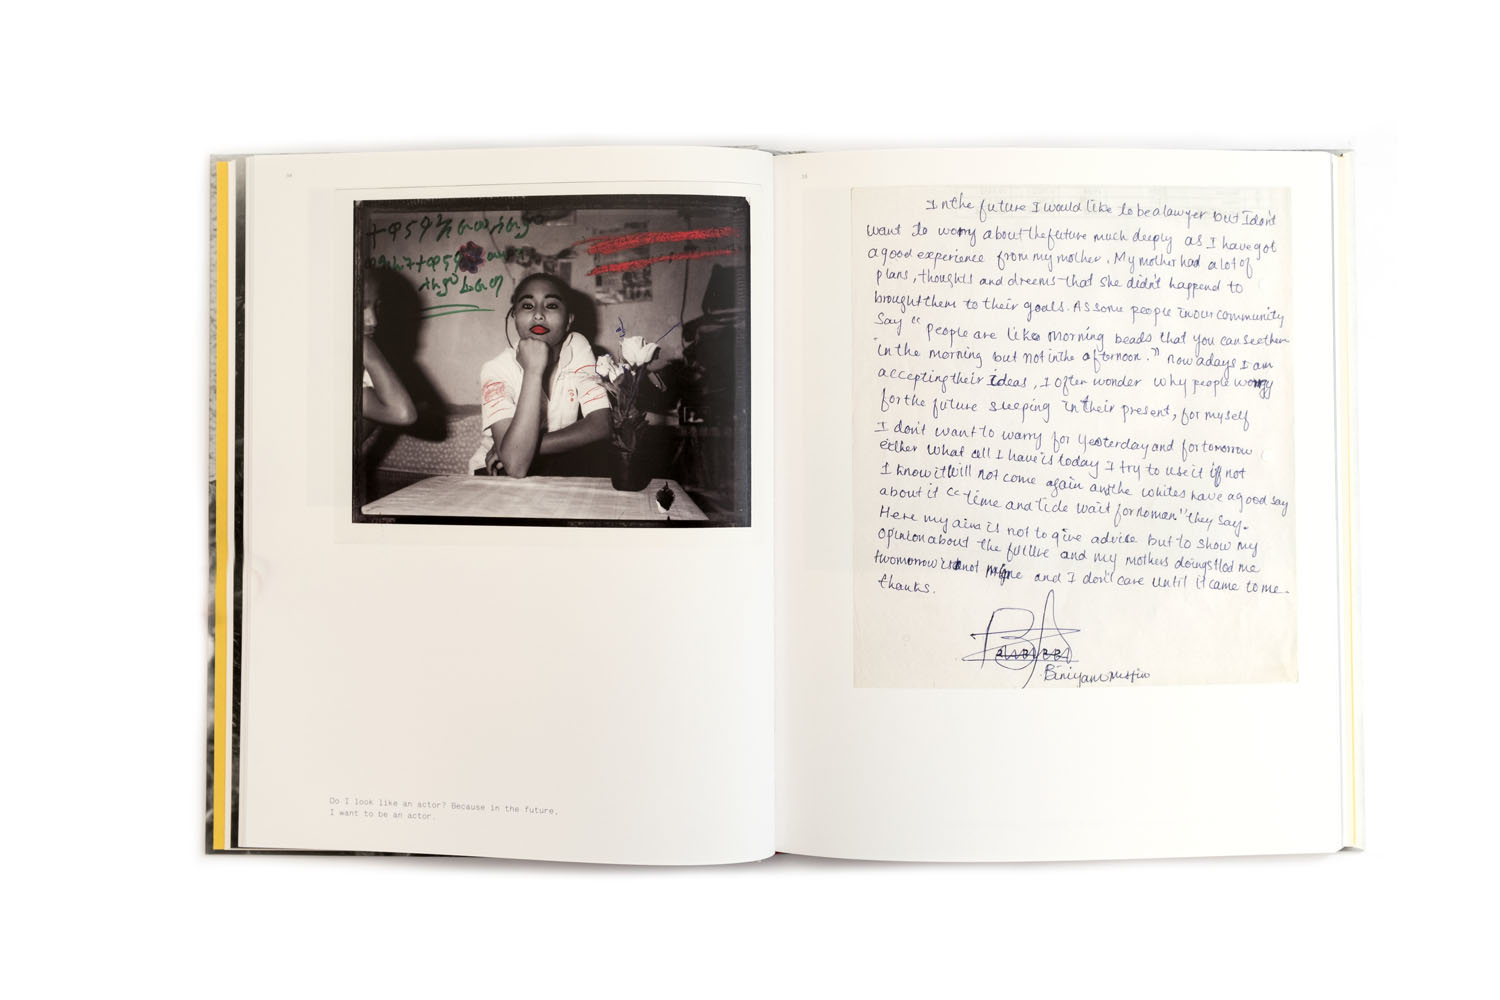 34
Do I look like an actor? Because in the future,
I want to be an actor.
35
In the future I would like to be a lawyer but I don't
want to worry about the future much deeply as I have got
a good experience from my mother. My mother had a lot of
plans, thoughts and dreems that she didn't happend to
brought them to their goals. As some people in our community
Say " people are like morning beads that you can see them
in the morning but not in the afternoon." now adays I am
accepting their ideas, I often wonder why people worry
for the future sleeping in their present, for myself
I don't want to warry for yesterday and for tomorrow
either what all I have is today I try to use it if not
I know it will not come again and the whites have a good say
about it "time and tide wait for noman" they say.
Here my aim is not to give advise but to show my
opinion about the future and my mothers doings tled me
twomorrow is not mine and I don't care until it came to me.
thanks.
Biniyam Mesfin